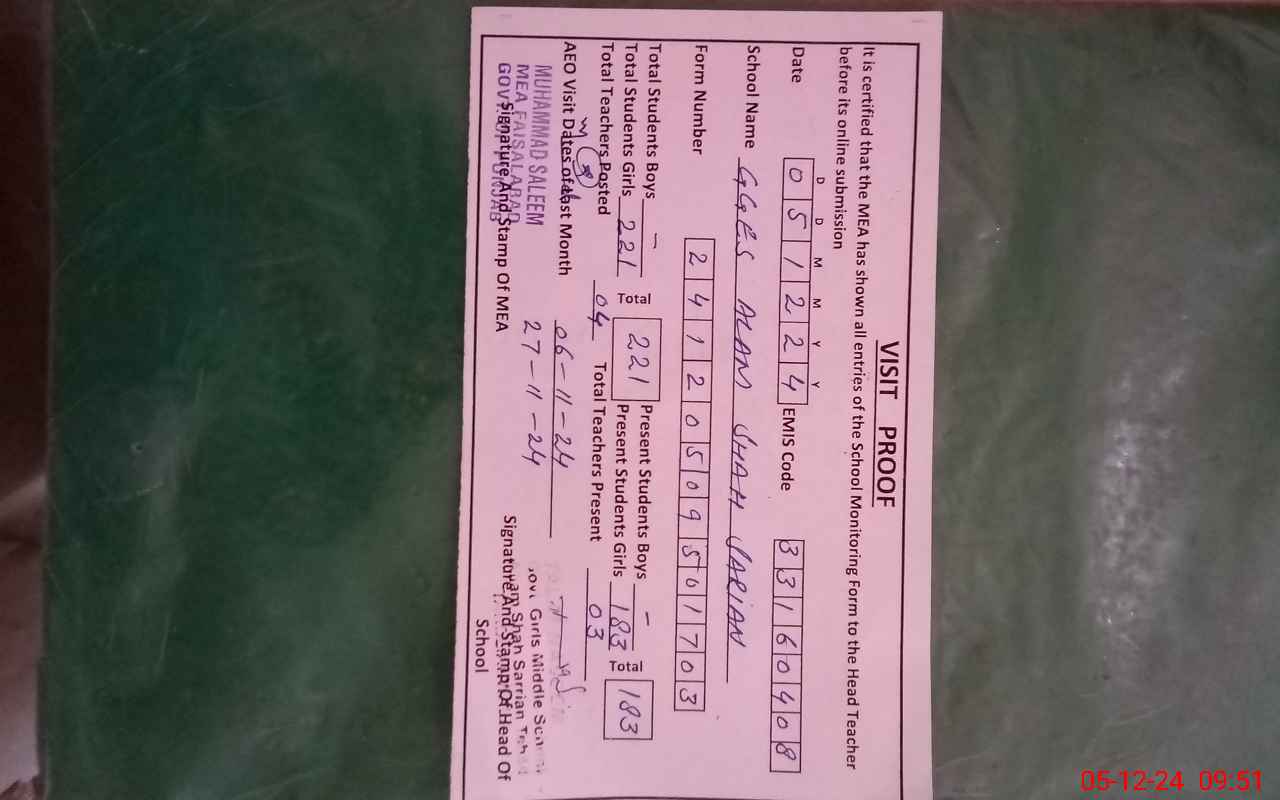 VISIT PROOF
It is certified that the MEA has shown all entries of the School Monitoring Form to the Head Teacher
before its online submission
D D M M Y Y
Date 0 5 1 2 2 4 EMIS Code 3 3 1 6 0 4 0 8
School Name GGES ALAM SHAH SARIAN
Form Number 2 4 1 2 0 5 0 9 5 0 1 7 0 3
Total Students Boys — Present Students Boys —
Total Students Girls 221 Total 221 Present Students Girls 183 Total 183
Total Teachers Posted 04 Total Teachers Present 03
AEO Visit Dates of Last Month 06-11-24
27-11-24
MUHAMMAD SALEEM
MEA FAISALABAD
GOVT OF PUNJAB
Signature And Stamp Of MEA
Govt Girls Middle
Shah Sarrian
Signature And Stamp Of Head Of
School
05-12-24 09:51